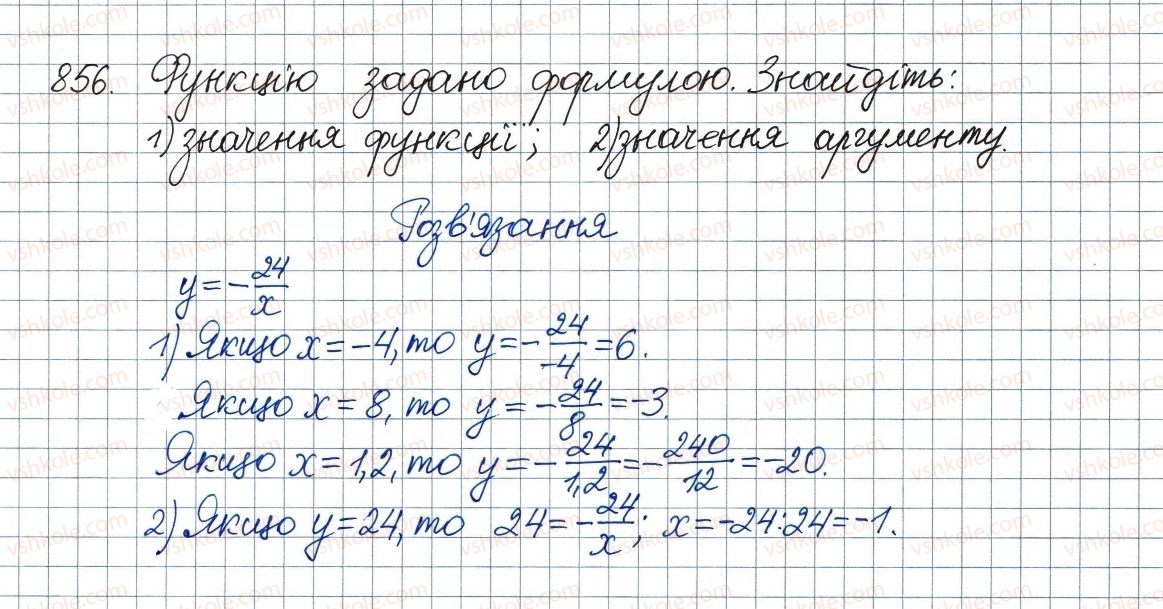 856. Функцію задано формулою. Знайдіть:
1) значення функції; 2) значення аргументу.
Розв'язання
y = -24/x
1) Якщо x = -4, то y = -24/-4 = 6.
Якщо x = 8, то y = -24/8 = -3.
Якщо x = 1,2, то y = -24/1,2 = -240/12 = -20.
2) Якщо y = 24, то 24 = -24/x; x = -24:24 = -1.